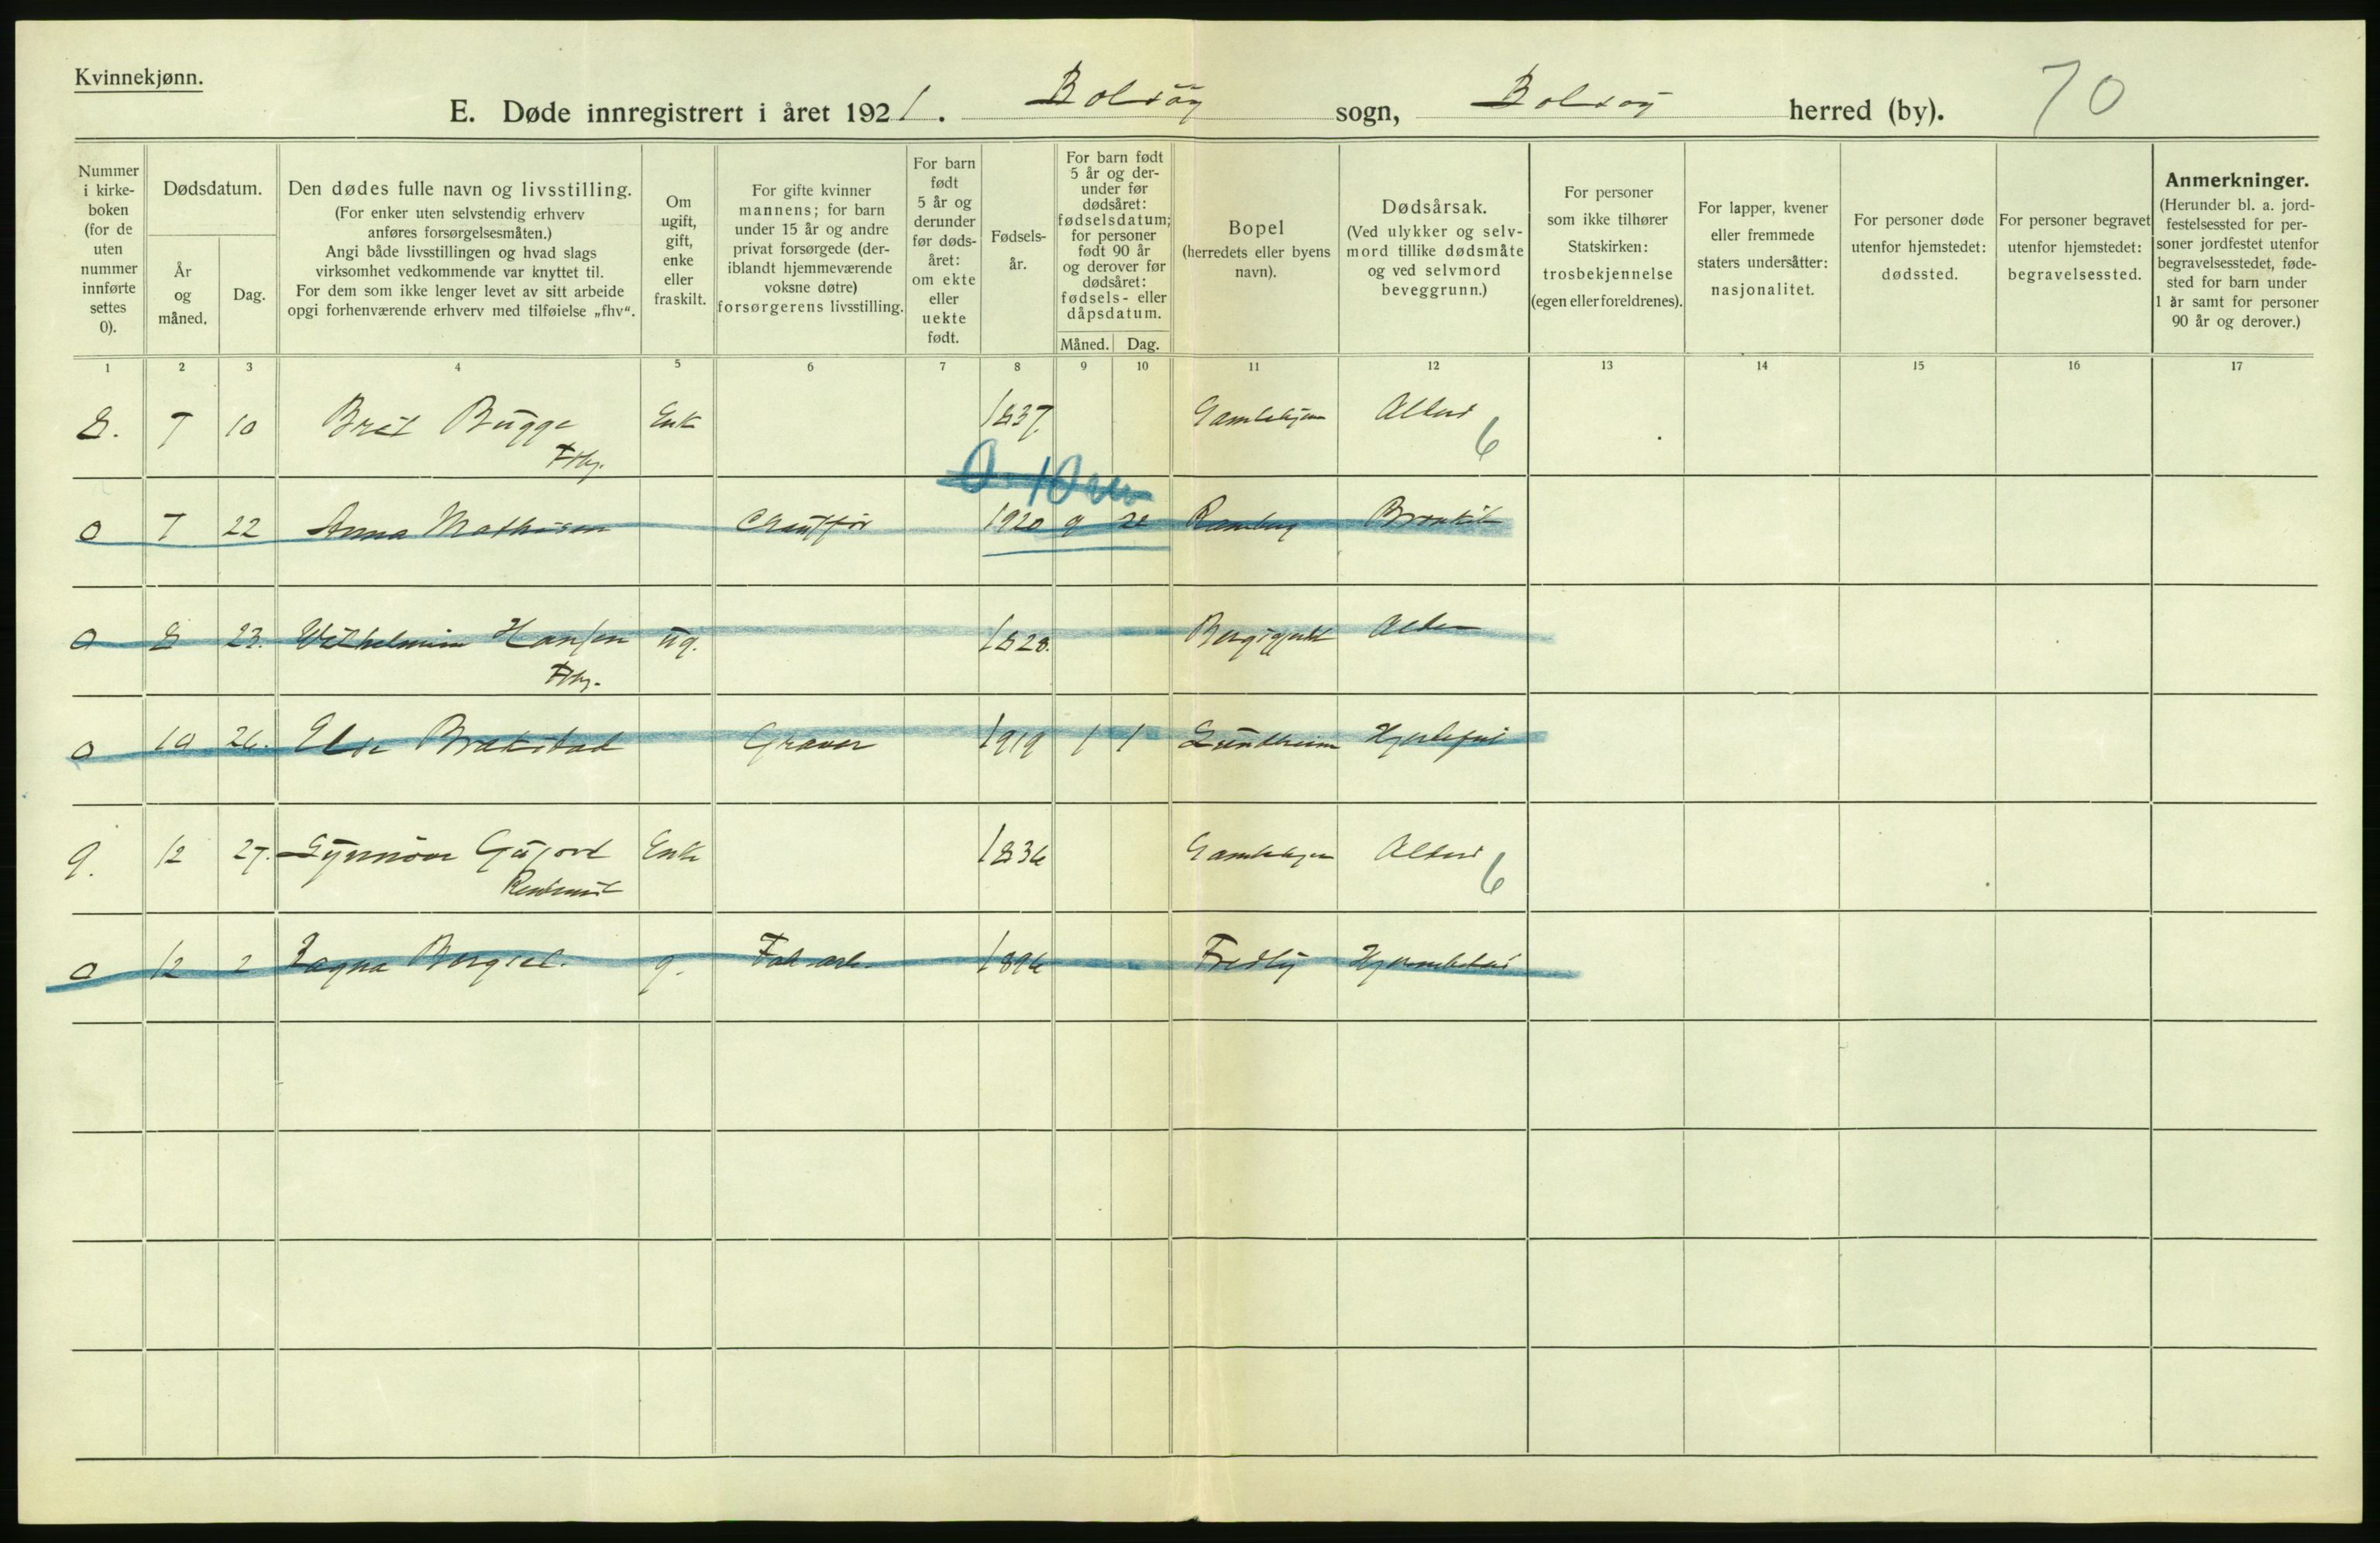 Kvinnekjønn.
E. Døde innregistrert i året 1921. Bolsøy sogn, Bolsøy herred (by). 70
Nummer i kirke-boken (for de uten nummer innførte settes 0).
Dødsdatum.
År og måned.
Dag.
Den dødes fulle navn og livsstilling.
(For enker uten selvstendig erhverv
anføres forsørgelsesmåten.)
Angi både livsstillingen og hvad slags
virksomhet vedkommende var knyttet til.
For dem som ikke lenger levet av sitt arbeide
opgi forhenværende erhverv med tilføielse „fhv“.
Om
ugift,
gift,
enke
eller
fraskilt.
For gifte kvinner
mannens; for barn
under 15 år og andre
privat forsørgede (der-
iblandt hjemmeværende
voksne døtre)
forsørgerens livsstilling.
For barn
født
5 år og
derunder
før døds-
året:
om ekte
eller
uekte
født.
Fødsels-
år.
For barn født
5 år og der-
under før
dødsåret:
fødselsdatum;
for personer
født 90 år
og derover før
dødsåret:
fødsels- eller
dåpsdatum.
Måned. Dag.
Bopel
(herredets eller byens
navn).
Dødsårsak.
(Ved ulykker og selv-
mord tillike dødsmåte
og ved selvmord
beveggrunn.)
For personer
som ikke tilhører
Statskirken:
trosbekjennelse
(egen eller foreldrenes).
For lapper, kvener
eller fremmede
staters undersåtter:
nasjonalitet.
For personer døde
utenfor hjemstedet:
dødssted.
For personer begravet
utenfor hjemstedet:
begravelsessted.
Anmerkninger.
(Herunder bl. a. jord-
festelsessted for per-
soner jordfestet utenfor
begravelsesstedet, føde-
sted for barn under
1 år samt for personer
90 år og derover.)
1 2 3 4 5 6 7 8 9 10 11 12 13 14 15 16 17
8. 7 10 Brit Bugge Enk 1837. Gamlehjem 6
0 7 22 Anna Mathisen Chauffør 1920 9 Bronkit
0 8 23. Hansen ug. 1828. Alder
0 10 26. Else Brakstad Graver 1919 1 1 Lundheim
9. 12 27. Synnøve Enk 1836 Gamlehjem 6
0 12 2 Ragna g. 1896 Fredly